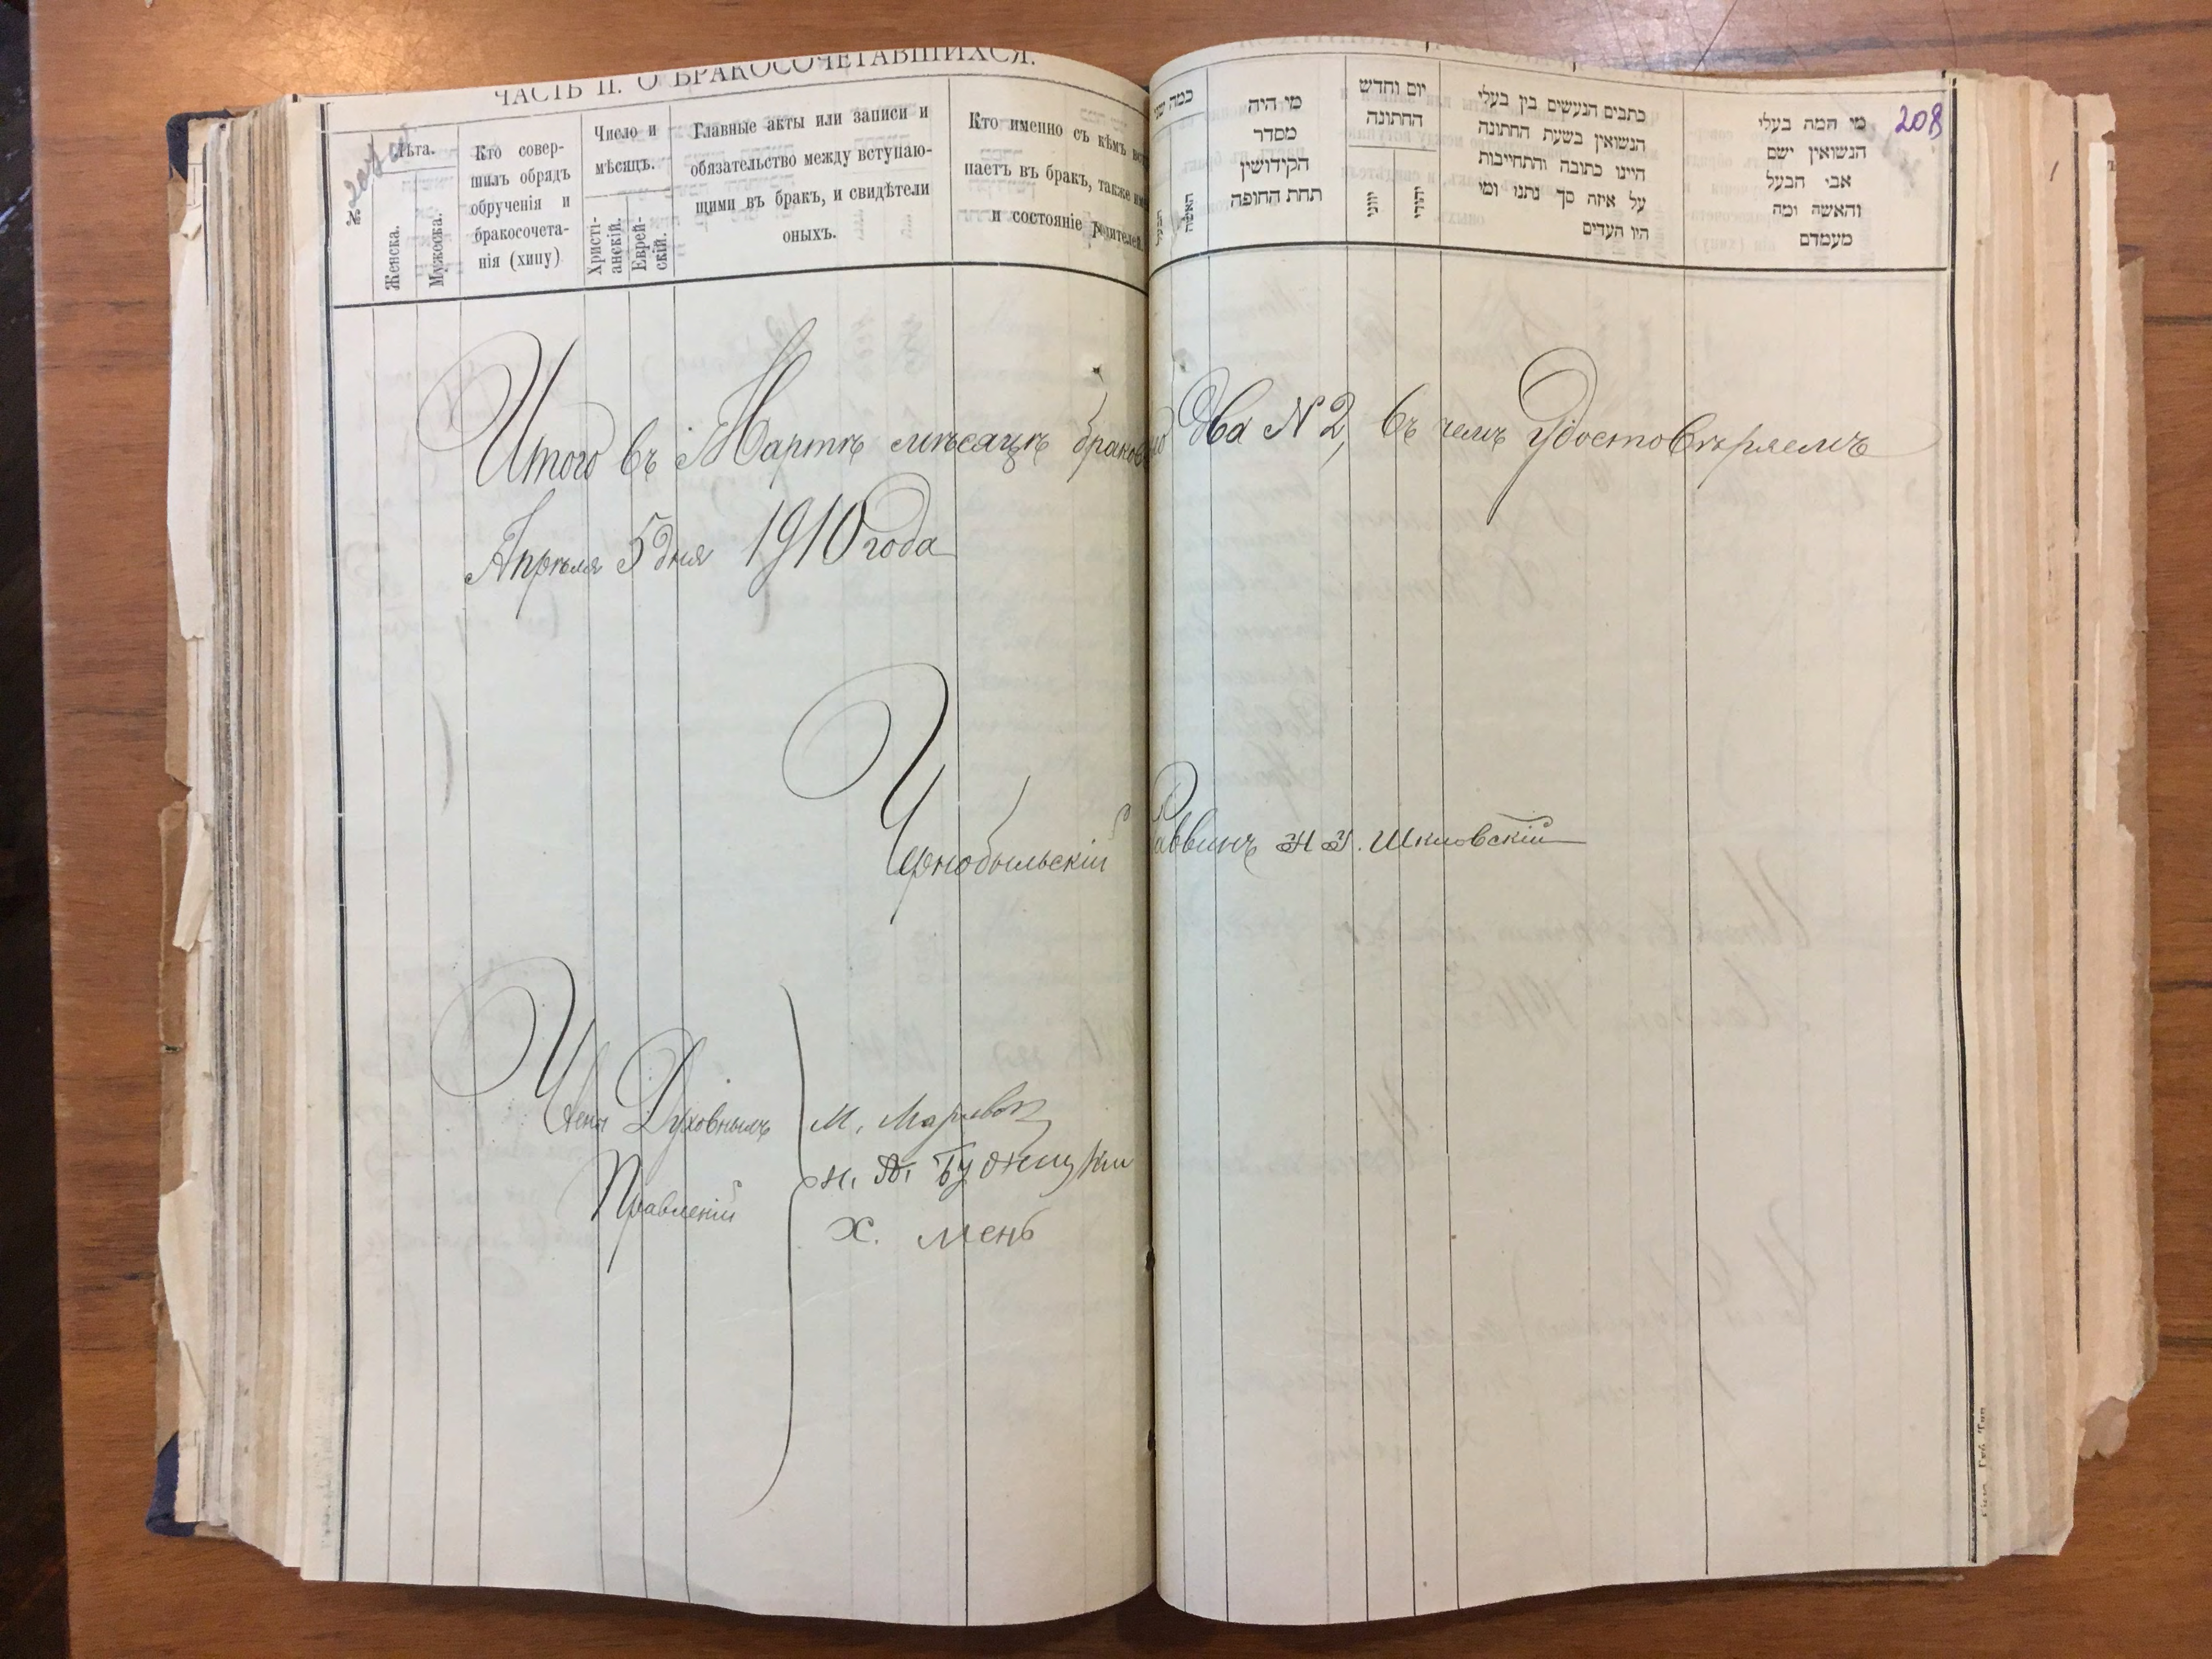 ЧАСТЬ II. О БРАКОСОЧЕТАВШИХСЯ.
№
Лѣта.
Женска.
Мужеска.
Кто совер-
шилъ обрядъ
обрученія и
бракосочета-
нія (хипу)
Число и
мѣсяцъ.
Христі-
анскій.
Еврей-
скій.
Главные акты или записи и
обязательство между вступаю-
щими въ бракъ, и свидѣтели
оныхъ.
Кто именно съ кѣмъ
паетъ въ бракъ, также
и состояніе родителей
כמה
האשה
הבעל
מי היה
מסדר
הקידושין
תחת החופה
יום וחדש
החתונה
יווני
יהודי
כתבים הנעשים בין בעלי
הנשואין בשעת החתונה
היינו כתובה והתחייבות
על איזה סך נתנו ומי
היו העדים
מי המה בעלי
הנשואין ישם
אבי הבעל
והאשה ומה
מעמדם
208
Итого въ Мартѣ мѣсяцѣ два № 2, въ чемъ удостовѣряемъ
Апрѣля 5 дня 1910 года
Чернобыльскій Раввинъ Шкловскій
Духовнымъ
Правленій
М.
Х. Мень